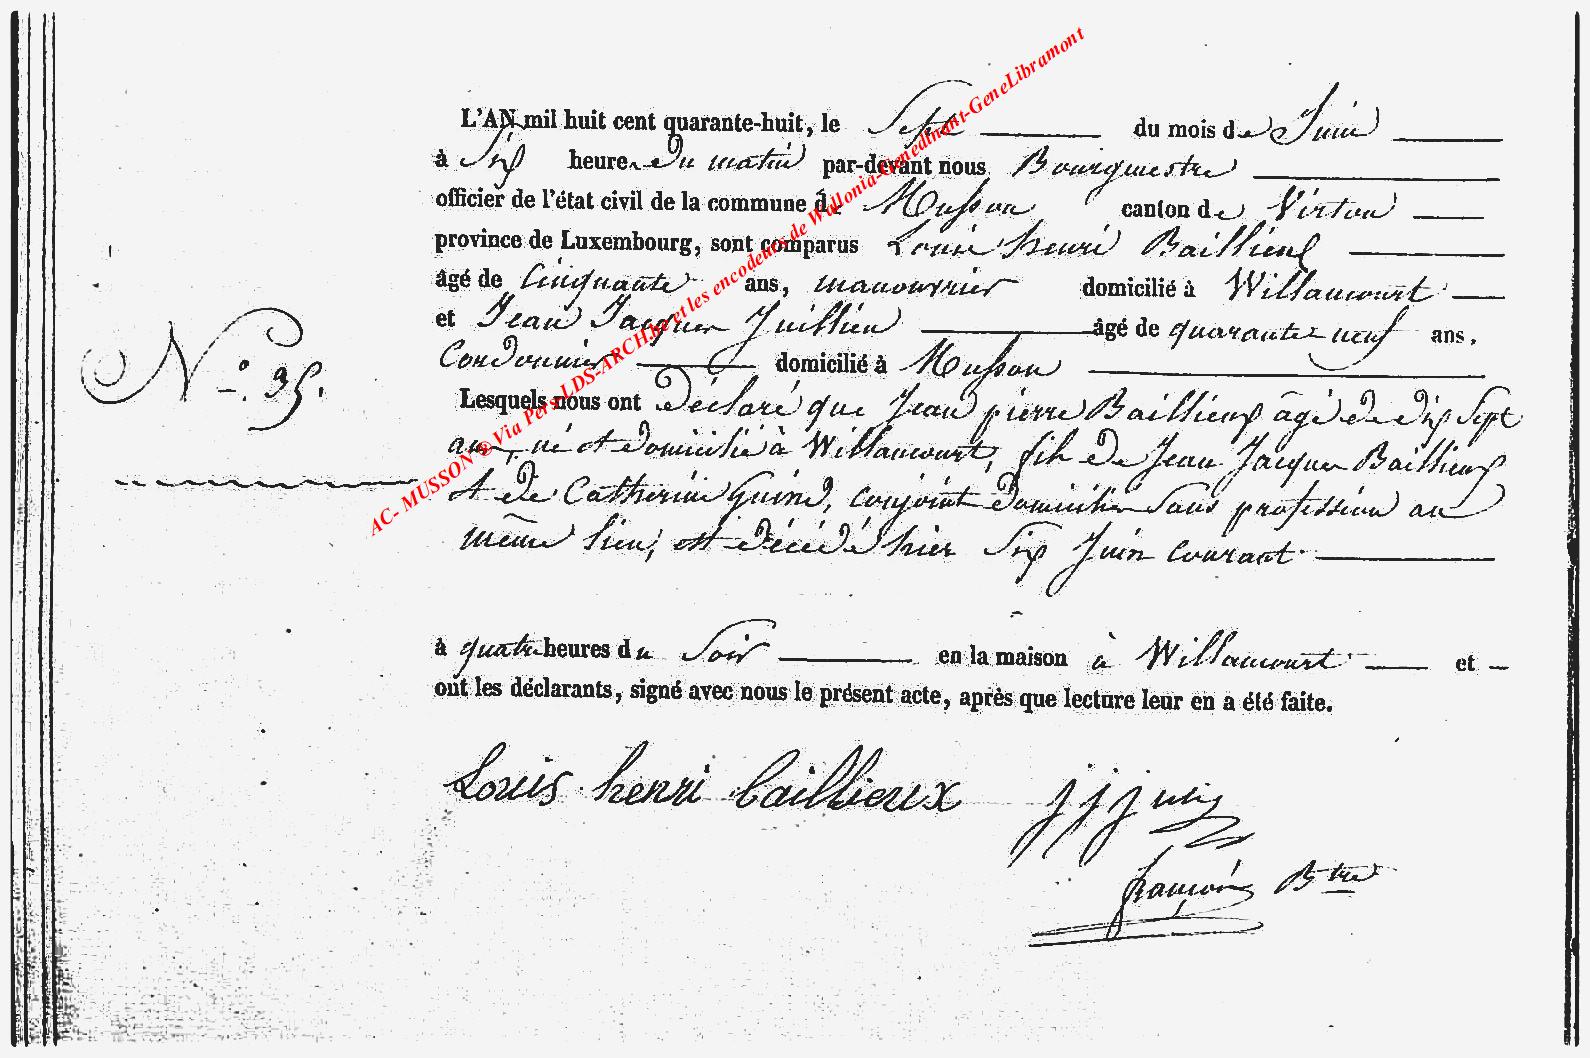 L'AN mil huit cent quarante-huit, le Sept du mois de Juin
à Six heures du matin par-devant nous Bourgmestre
officier de l'état civil de la commune de Musson canton de Virton
province de Luxembourg, sont comparus Louis henri Baillieux
âgé de Cinquante ans, manouvrier domicilié à Willancourt
et Jean Jacques Juillien âgé de quarante neuf ans.
Cordonnier domicilié à Musson
N.o 35.
Lesquels nous ont déclaré que Jean pierre Baillieux âgé de dix Sept
ans, né et domicilié à Willancourt, fils de Jean Jacques Baillieux
et de Catherine Guine, conjoints domiciliés Sans profession au
même lieu, est décédé hier Six Juin Courant
à quatre heures du Soir en la maison à Willancourt et
ont les déclarants, signé avec nous le présent acte, après que lecture leur en a été faite.
Louis henri baillieux
J J
françois Btre
AC- MUSSON © Via Pers LDS-ARCH.be et les encodeurs de Wallonia-Genedinant-GeneLibramont